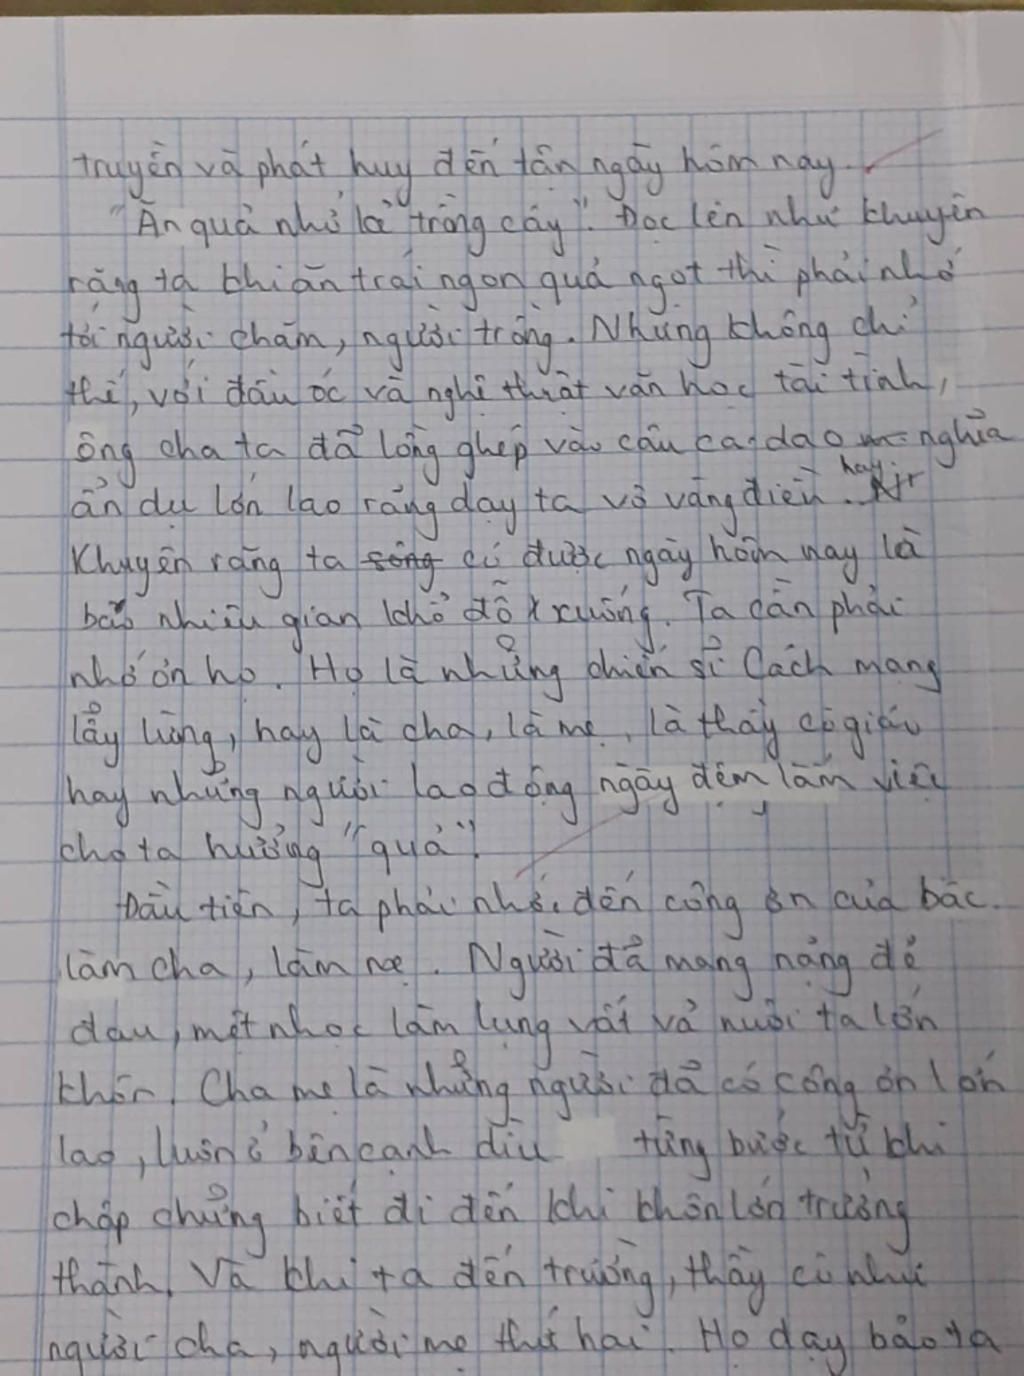 truyền và phát huy đến tận ngày hôm nay.
"Ăn quả nhớ kẻ trồng cây". Đọc lên như khuyên
rằng ta khi ăn trái ngon quả ngọt thì phải nhớ
tới người chăm, người trồng. Nhưng không chỉ
thế, với đầu óc và nghệ thuật văn học tài tình,
ông cha ta đã lồng ghép vào câu ca dao nghĩa
ẩn dụ lớn lao rằng dạy ta vô vàng điều hay.
Khuyên rằng ta sống có được ngày hôm nay là
bao nhiêu gian khổ đổ xuống. Ta cần phải
nhớ ơn họ. Họ là những chiến sĩ Cách mạng
lẫy lừng, hay là cha, là mẹ, là thầy cô giáo
hay những người lao động ngày đêm làm việc
cho ta hưởng "quả".
Đầu tiên, ta phải nhớ đến công ơn của bậc
làm cha, làm mẹ. Người đã mang nặng đẻ
đau, mệt nhọc làm lụng vất vả nuôi ta lớn
khôn. Cha mẹ là những người đã có công ơn lớn
lao, luôn ở bên cạnh dìu từng bước từ khi
chập chững biết đi đến khi khôn lớn trưởng
thành. Và khi ta đến trường, thầy cô như
người cha, người mẹ thứ hai. Họ dạy bảo ta